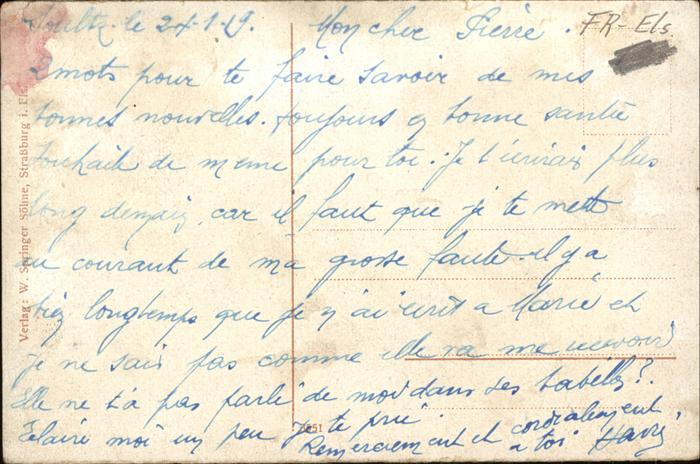 Soultz le 24.1.19. Mon cher Pierre.
FR-Els.
2 mots pour te faire savoir de mes
bonnes nouvelles. toujours en bonne santé
souhaite de meme pour toi. Je t'écrirais plus
long demain, car il faut que je te mette
au courant de ma grosse faute. il y a
bien longtemps que je n'ai écrit a Marie et
je ne sais pas comme elle va me recevoir
Elle ne t'a pas parlé de moi dans ses babilles?.
Eclaire moi un peu je te prie.
Remerciement et cordialement
a toi Harry
Verlag: W. Springer Söhne, Straßburg i. Els.